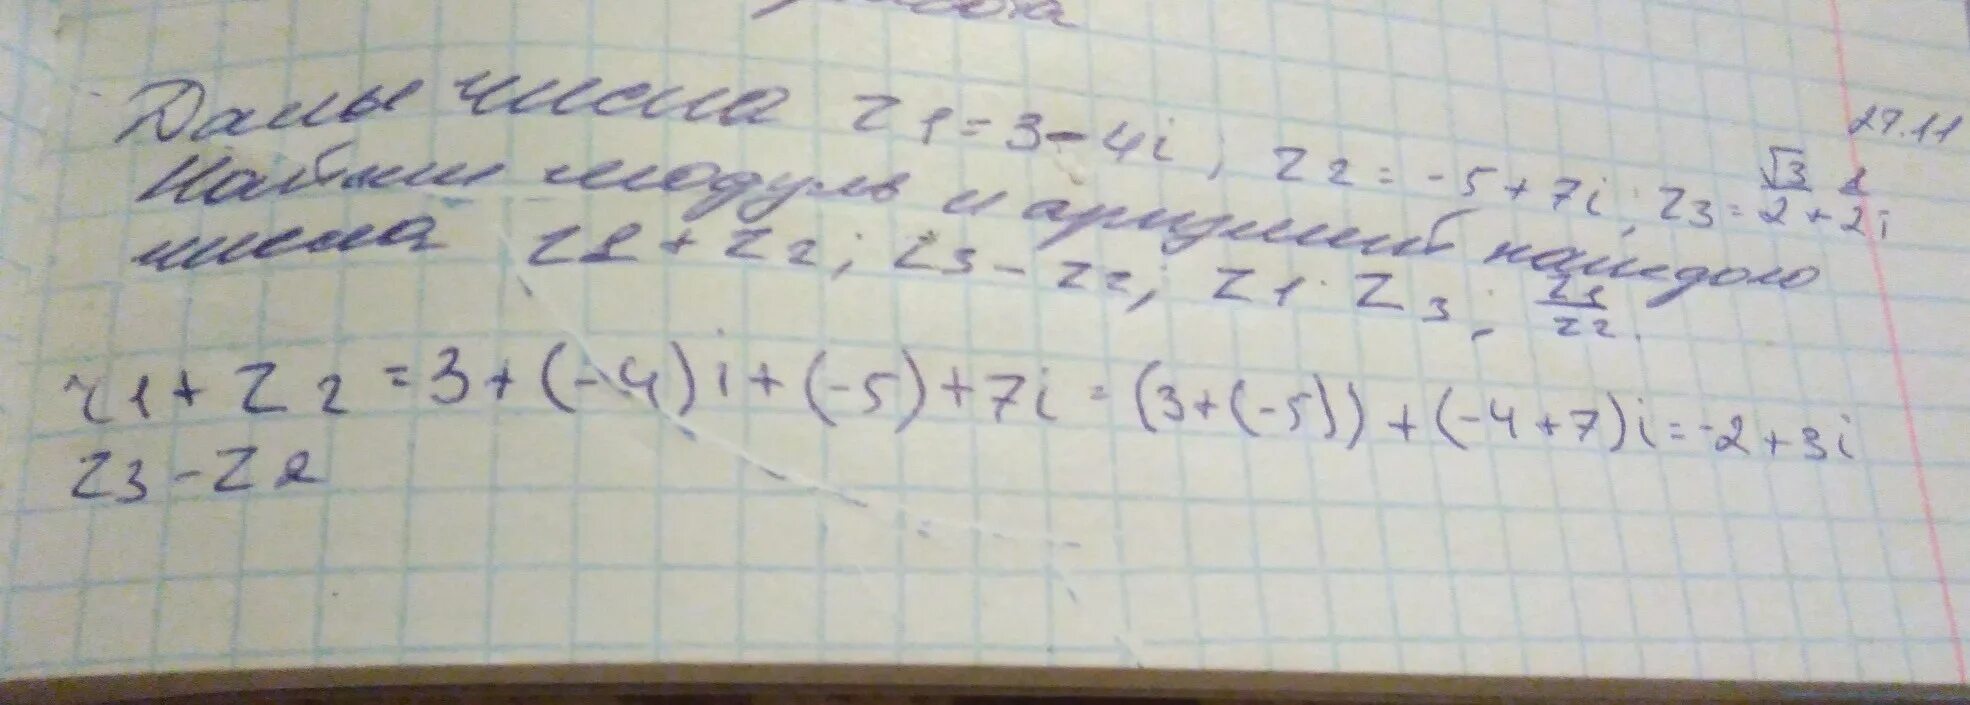 27.11
Даны числа z1 = 3 - 4i; z2 = -5 + 7i; z3 = √3/2 + 1/2 i
Найти модуль и аргумент каждого
числа z1 + z2; z3 - z2; z1 · z3; z1/z2.
z1 + z2 = 3 + (-4)i + (-5) + 7i = (3 + (-5)) + (-4 + 7)i = -2 + 3i
z3 - z2